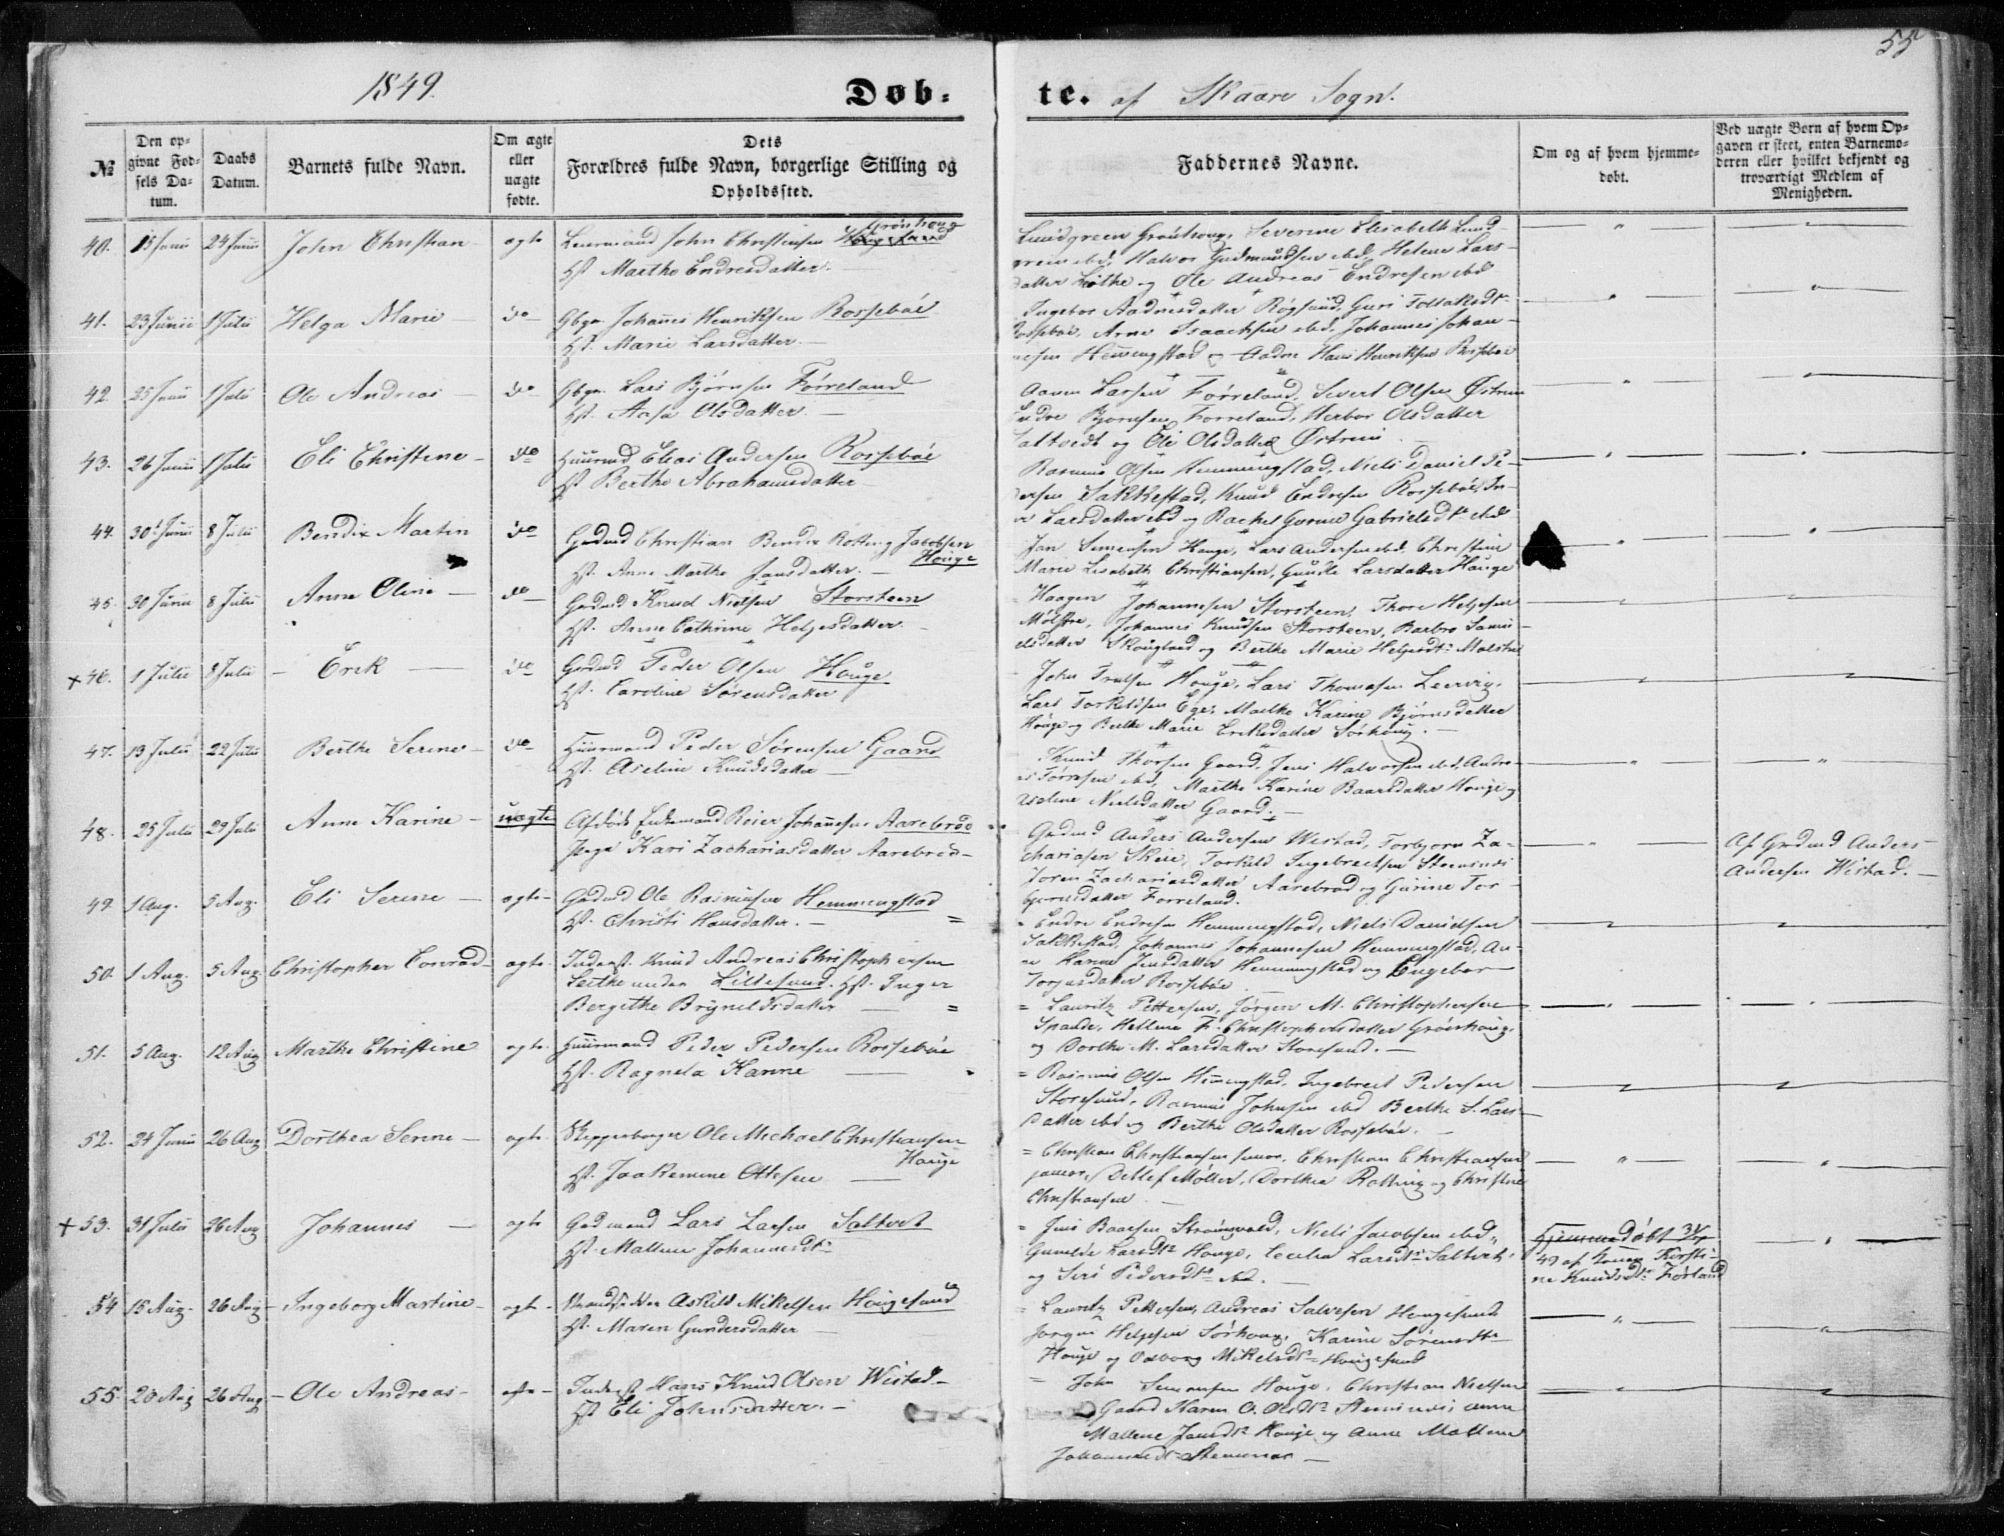 55
1849.
Døb-
te. af Skaare Sogn.
№
Den op-
givne Fød-
sels Da-
tum.
Daabs
Datum.
Barnets fulde Navn.
Om ægte
eller
uægte
fødte.
Dets
Forældres fulde Navn, borgerlige Stilling og
Opholdssted.
Faddernes Navne.
Om og af hvem hjemme-
døbt.
Ved uægte Børn af hvem Op-
gaven er skeet, enten Barnemo-
deren eller hvilket bekjendt og
troværdigt Medlem af
Menigheden.
40. 15 Junii 24 Junii John Christian ægte Leiermand John Christensen Grönhoug
Hst. Marthe Endresdatter.
Lundgreen Grönhoug, Severine Elisabeth Lund-
green ibd, Halvor Gudmundsen ibd, Helene Lars-
datter Lothe og Ole Andreas Endresen ibd
41. 23 Junii 1 Julii Helga Marie do Gbgr. Johannes Henriksen Rossebøe
Hst. Marie Larsdatter.
Ingebor Aadnesdatter Røgsund, Guri Tollaksdtr
Rossebøe, Arne Isaachsen ibd, Johannes Johan-
nesen Hemmingstad og Hans Henriksen Rossebøe
42. 25 Junii 1 Julii Ole Andreas do Gbgr. Lars Bjørnsen Førreland
Hst. Aasa Olsdatter.
Larsen Førreland, Sivert Olsen Østrem
Endre Bjørnsen Førreland, Herbor Olsdatter
Saltvedt og Eli Olsdatter Østrem
43. 26 Junii 1 Julii Eli Christine do Huusmd Elias Andersen Rossebøe
Hst Berthe Abrahamsdatter
Rasmus Olsen Hemmingstad, Niels Daniel Pe-
dersen Sakkestad, Knud Endresen Rossebøe,
Larsdatter ibd og Rachel Gurine Gabrielsdtr ibd
44. 30 Junii 8 Julii Bendix Martin do Gadmd Christian Bendix Rotting Jacobsen
Houge
Hst. Anne Marthe Jansdatter.
Jan Simensen Houge, Lars Andersen ibd, Christine
Marie Lisabeth Christiansen, Gunilde Larsdatter Houge
45. 30 Junii 8 Julii Anne Oline do Gadmd Knud Nielsen Storsteen
Hst. Anne Cathrine Helgesdatter.
Haagen Johannesen Storsteen, Thore Helgesen
Mølstre, Johannes Knudsen Storsteen, Barbro Samu-
elsdatter Skougland og Berthe Marie Helgesdtr Molstre
+ 46. 1 Julii 8 Julii Erik do Gadmd Peder Olsen Houge
Hst. Caroline Sørensdatter
John Houge, Lars Thomasen Leervig,
Lars Torkildsen Ege, Marthe Karine Bjørnsdatter
Houge og Berthe Marie Eriksdatter Sørhoug.
47. 13 Julii 22 Julii Berthe Serine do Huusmand Peder Sørensen Gaard
Hst. Aseline Knudsdatter
Knud Thorsen Gaard, Jens Halvorsen ibd, Andre-
as Tørresen ibd, Marthe Karine Baardsdatter Houge og
Aselene Nielsdatter Gaard.
48. 25 Julii 29 Juli Anne Karine uægte Afdøde Enkemand Reier Johannesen Aarebrød
Pige Kari Zachariasdatter Aarebrød
Gadmd Anders Andersen Wistad, Torbjørn Za-
chariasen Skeie, Torkild Ingebretsen Steensnes
Joren Zachariasdatter Aarebrød og Gurine Tor-
gersdatter Førreland.
Af Gadmd Anders
Andersen Wistad.
49. 1 Aug. 5 Aug. Eli Serine ægte Gadmd Ole Rasmusen Hemmingstad
Hst. Christi Hansdatter.
Endre Endresen Hemmingstad, Niels Danielsen
Sakkestad, Johannes Johannesen Hemmingstad, An-
Karine Jensdatter Hemmingstad og Engebor
Torjusdatter Rossebøe
50. 1 Aug. 5 Aug. Christopher Conrad ægte Inderst. Knud Andreas Christophersen
under Lillesund. Hst. Inger
Bergithe Brynildsdatter
Lauritz Pettersen, Jørgen M. Christophersen
Spande, Hellene F. Christophersdatter Grönhoug,
og Dorthe M. Larsdatter Storesund.
51. 5 Aug. 12 Aug Marthe Christine ægte Huusmand Peder Pedersen Rossebøe
Hst. Ragnela Karine
Rasmus Olsen Hemmingstad, Ingebret Pedersen
Storesund, Rasmus Johnsen ibd Berthe S. Lars-
datter ibd og Berthe Olsdatter Rossebøe.
52. 24 Junii 26 Aug Dorthea Serine ægte Skipperborger Ole Michael Christiansen
Houge
Hst. Joakemine Ottesen
Christian Christiansen senior, Christian Christiansen
junior, Detlef Møller, Dorthea Rotting og Christine
Christiansen
+ 53. 31 Julii 26 Aug Johannes ægte Gadmand Lars Larsen Saltvet
Hst. Mallene Johannesdtr
Jens Baarsen Niels Jacobsen ibd,
Gunilde Larsdtr Houge, Cecilia Larsdtr Saltvet,
og Siri Pedersdtr ibd.
Hjemmedøbt
49 af Kirsti-
ne Knudsdtr Førland
54 15 Aug. 26 Aug Ingeborg Martine ægte Strandsidder Askild Mikelsen Hougesund
Hst. Maren Gundersdatter
Lauritz Pettersen, Andreas Salvesen Hougesund
Jørgen Helgesen Sørhoug, Karine Sørensdtr
Houge og Mikelsdtr Hougesund
55. 20 Aug 26 Aug Ole Andreas ægte Inderst Hans Knud Olsen Wistad
Hst Eli Johnsdatter.
John Simonsen Houge, Christian Nielsen
Gaard Karen O. Olsdtr Anne
Mallene Jansdtr Houge og Anne Mallene
Johannesdtr